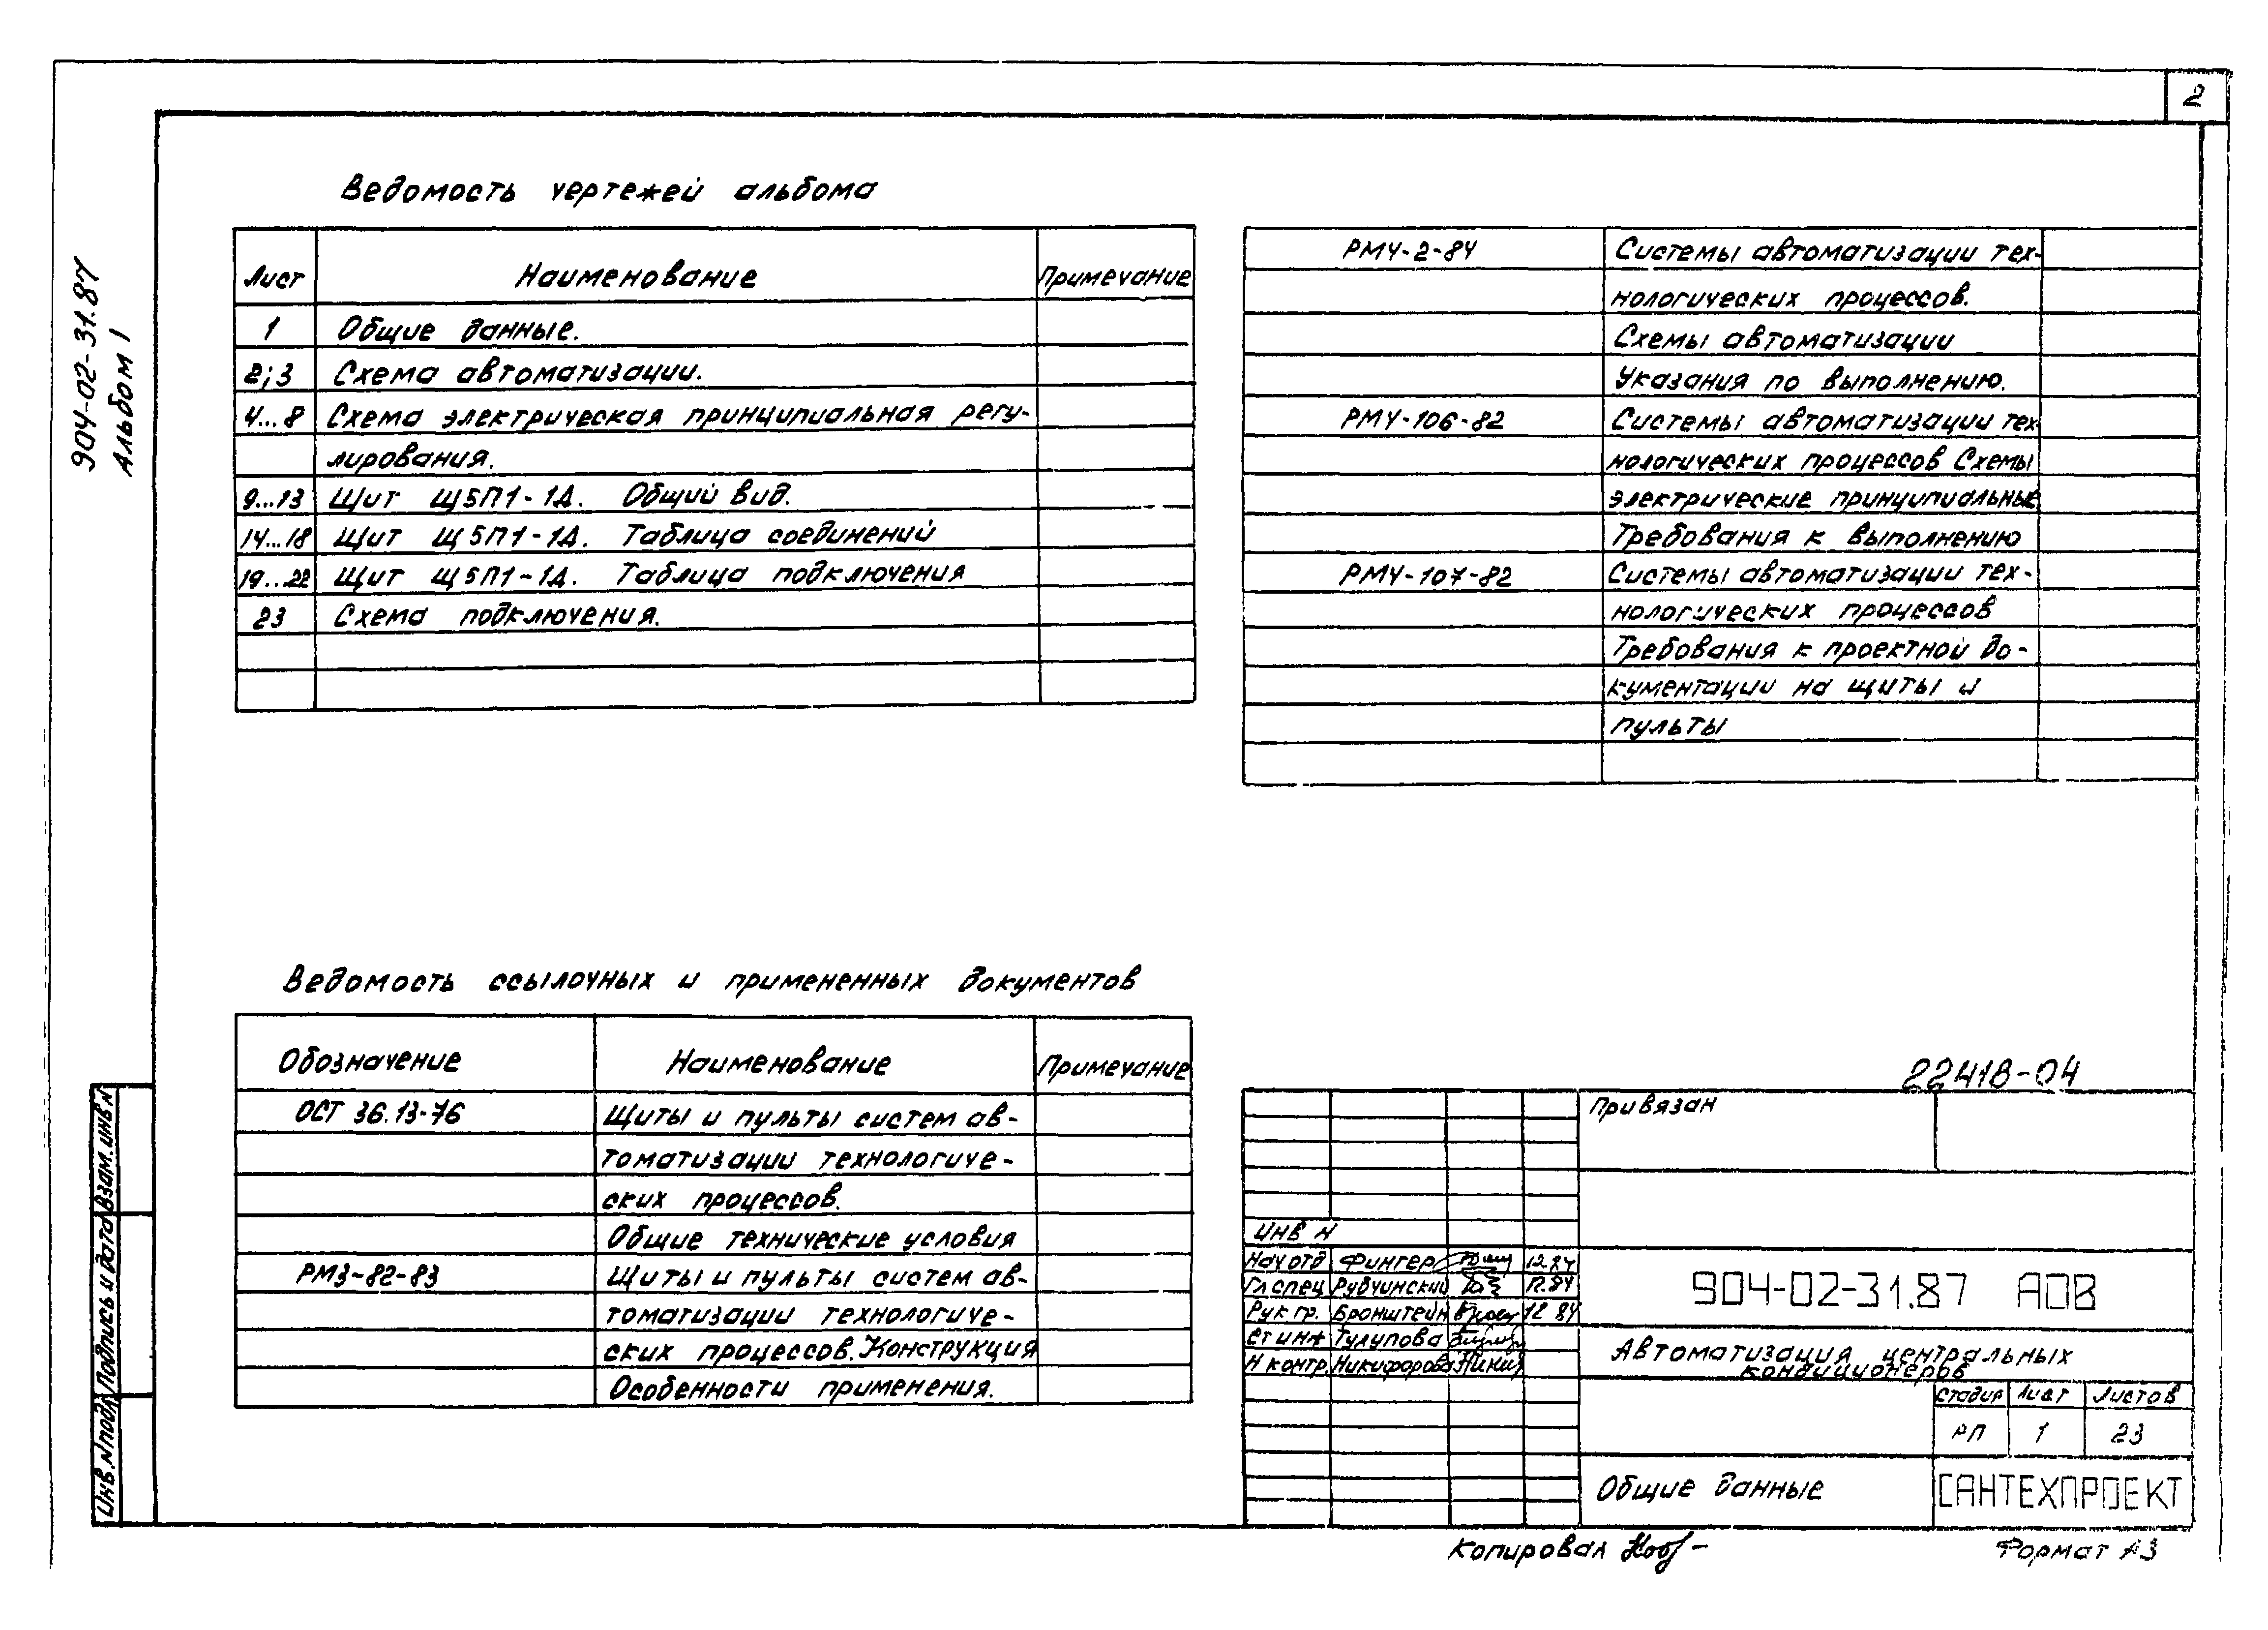 2
904-02-31.87
Альбом 1
Ведомость чертежей альбома
Лист Наименование Примечание
1 Общие данные.
2;3 Схема автоматизации.
4...8 Схема электрическая принципиальная регу-
лирования.
9...13 Щит Щ5П1-1Д. Общий вид.
14...18 Щит Щ5П1-1Д. Таблица соединений
19...22 Щит Щ5П1-1Д. Таблица подключения
23 Схема подключения.
РМ4-2-84 Системы автоматизации тех-
нологических процессов.
Схемы автоматизации
Указания по выполнению.
РМ4-106-82 Системы автоматизации тех-
нологических процессов Схемы
электрические принципиальные
Требования к выполнению
РМ4-107-82 Системы автоматизации тех-
нологических процессов
Требования к проектной до-
кументации на щиты и
пульты
Ведомость ссылочных и примененных документов
Обозначение Наименование Примечание
ОСТ 36.13-76 Щиты и пульты систем ав-
томатизации технологиче-
ских процессов.
Общие технические условия
РМ3-82-83 Щиты и пульты систем ав-
томатизации технологиче-
ских процессов. Конструкция
Особенности применения.
22418-04
Привязан
Инв N
Нач отд Фингер 12.84
Гл спец Рубчинский 12.84
Рук гр. Бронштейн 12 84
Ст инж Тулупова
Н контр. Никифорова
904-02-31.87 АОВ
Автоматизация центральных
кондиционеров
Стадия Лист Листов
РП 1 23
Общие данные
САНТЕХПРОЕКТ
Копировал
Формат А3
Инв.N подл Подпись и дата Взам.инв N